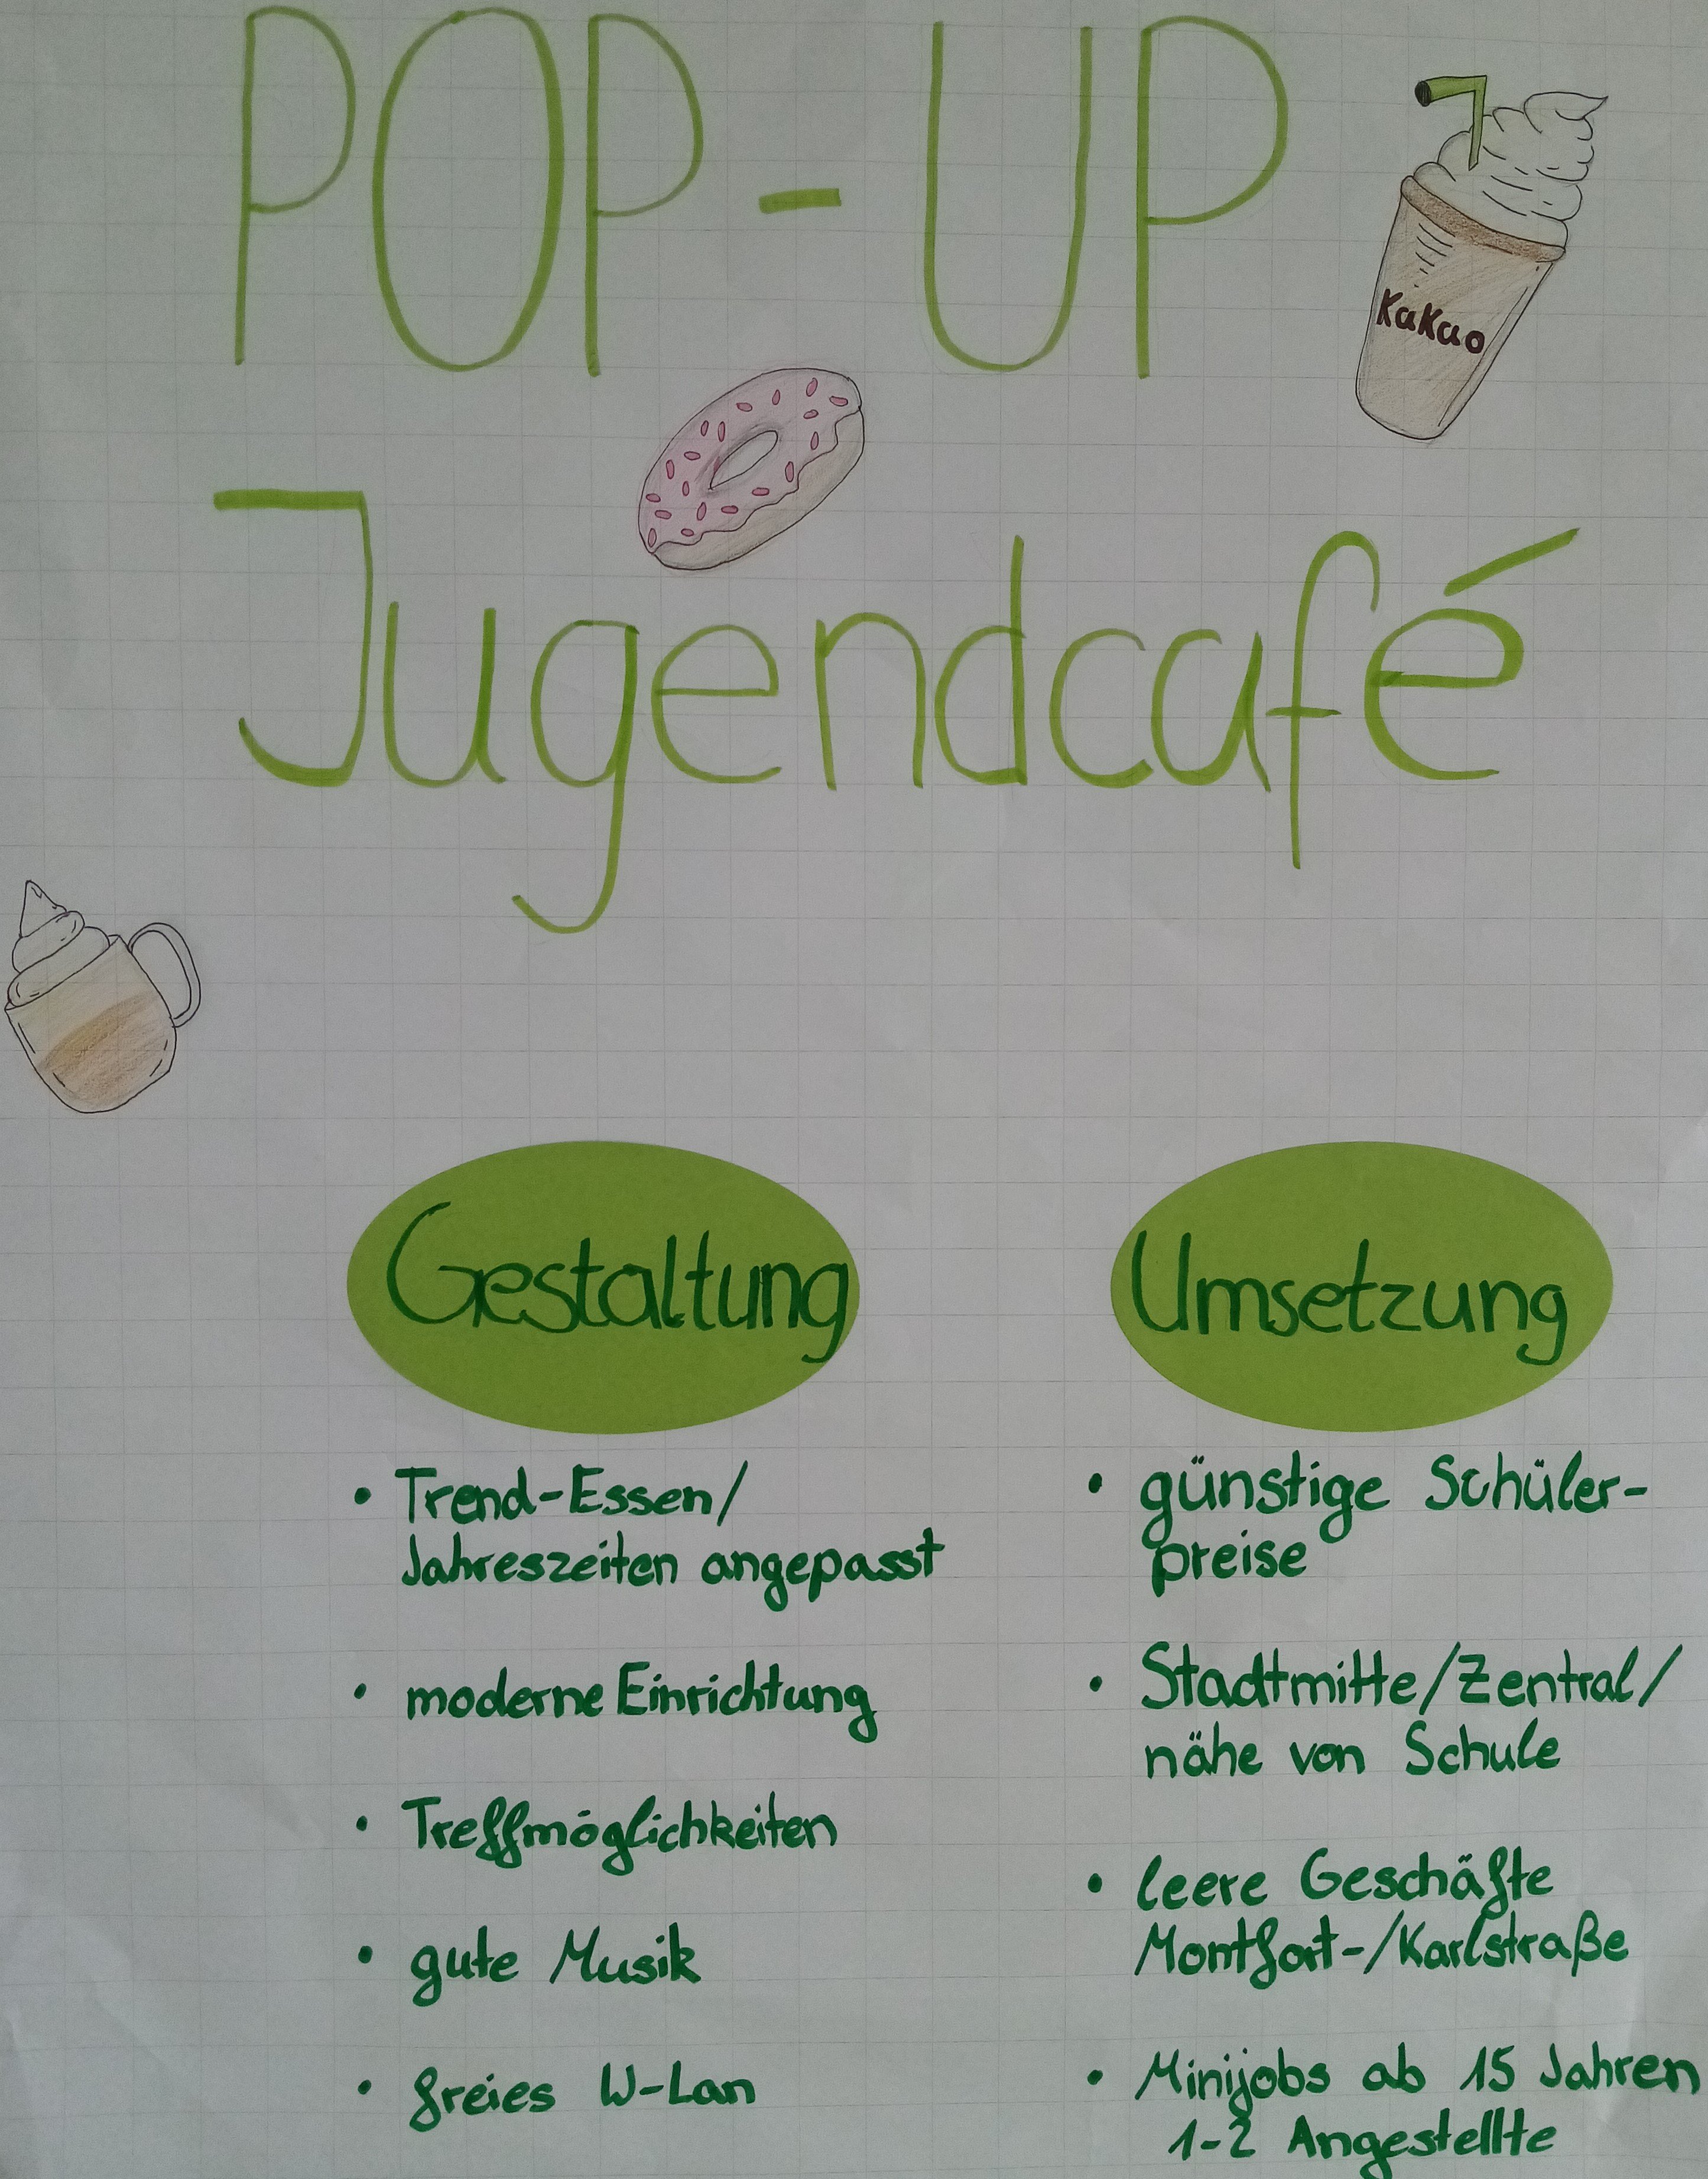 POP-UP
Kakao
Jugendcafé
Gestaltung
• Trend-Essen/
Jahreszeiten angepasst
• moderne Einrichtung
• Treffmöglichkeiten
• gute Musik
• freies W-Lan
Umsetzung
• günstige Schüler-
preise
• Stadtmitte/Zentral/
nähe von Schule
• leere Geschäfte
Montfort-/Karlstraße
• Minijobs ab 15 Jahren
1-2 Angestellte